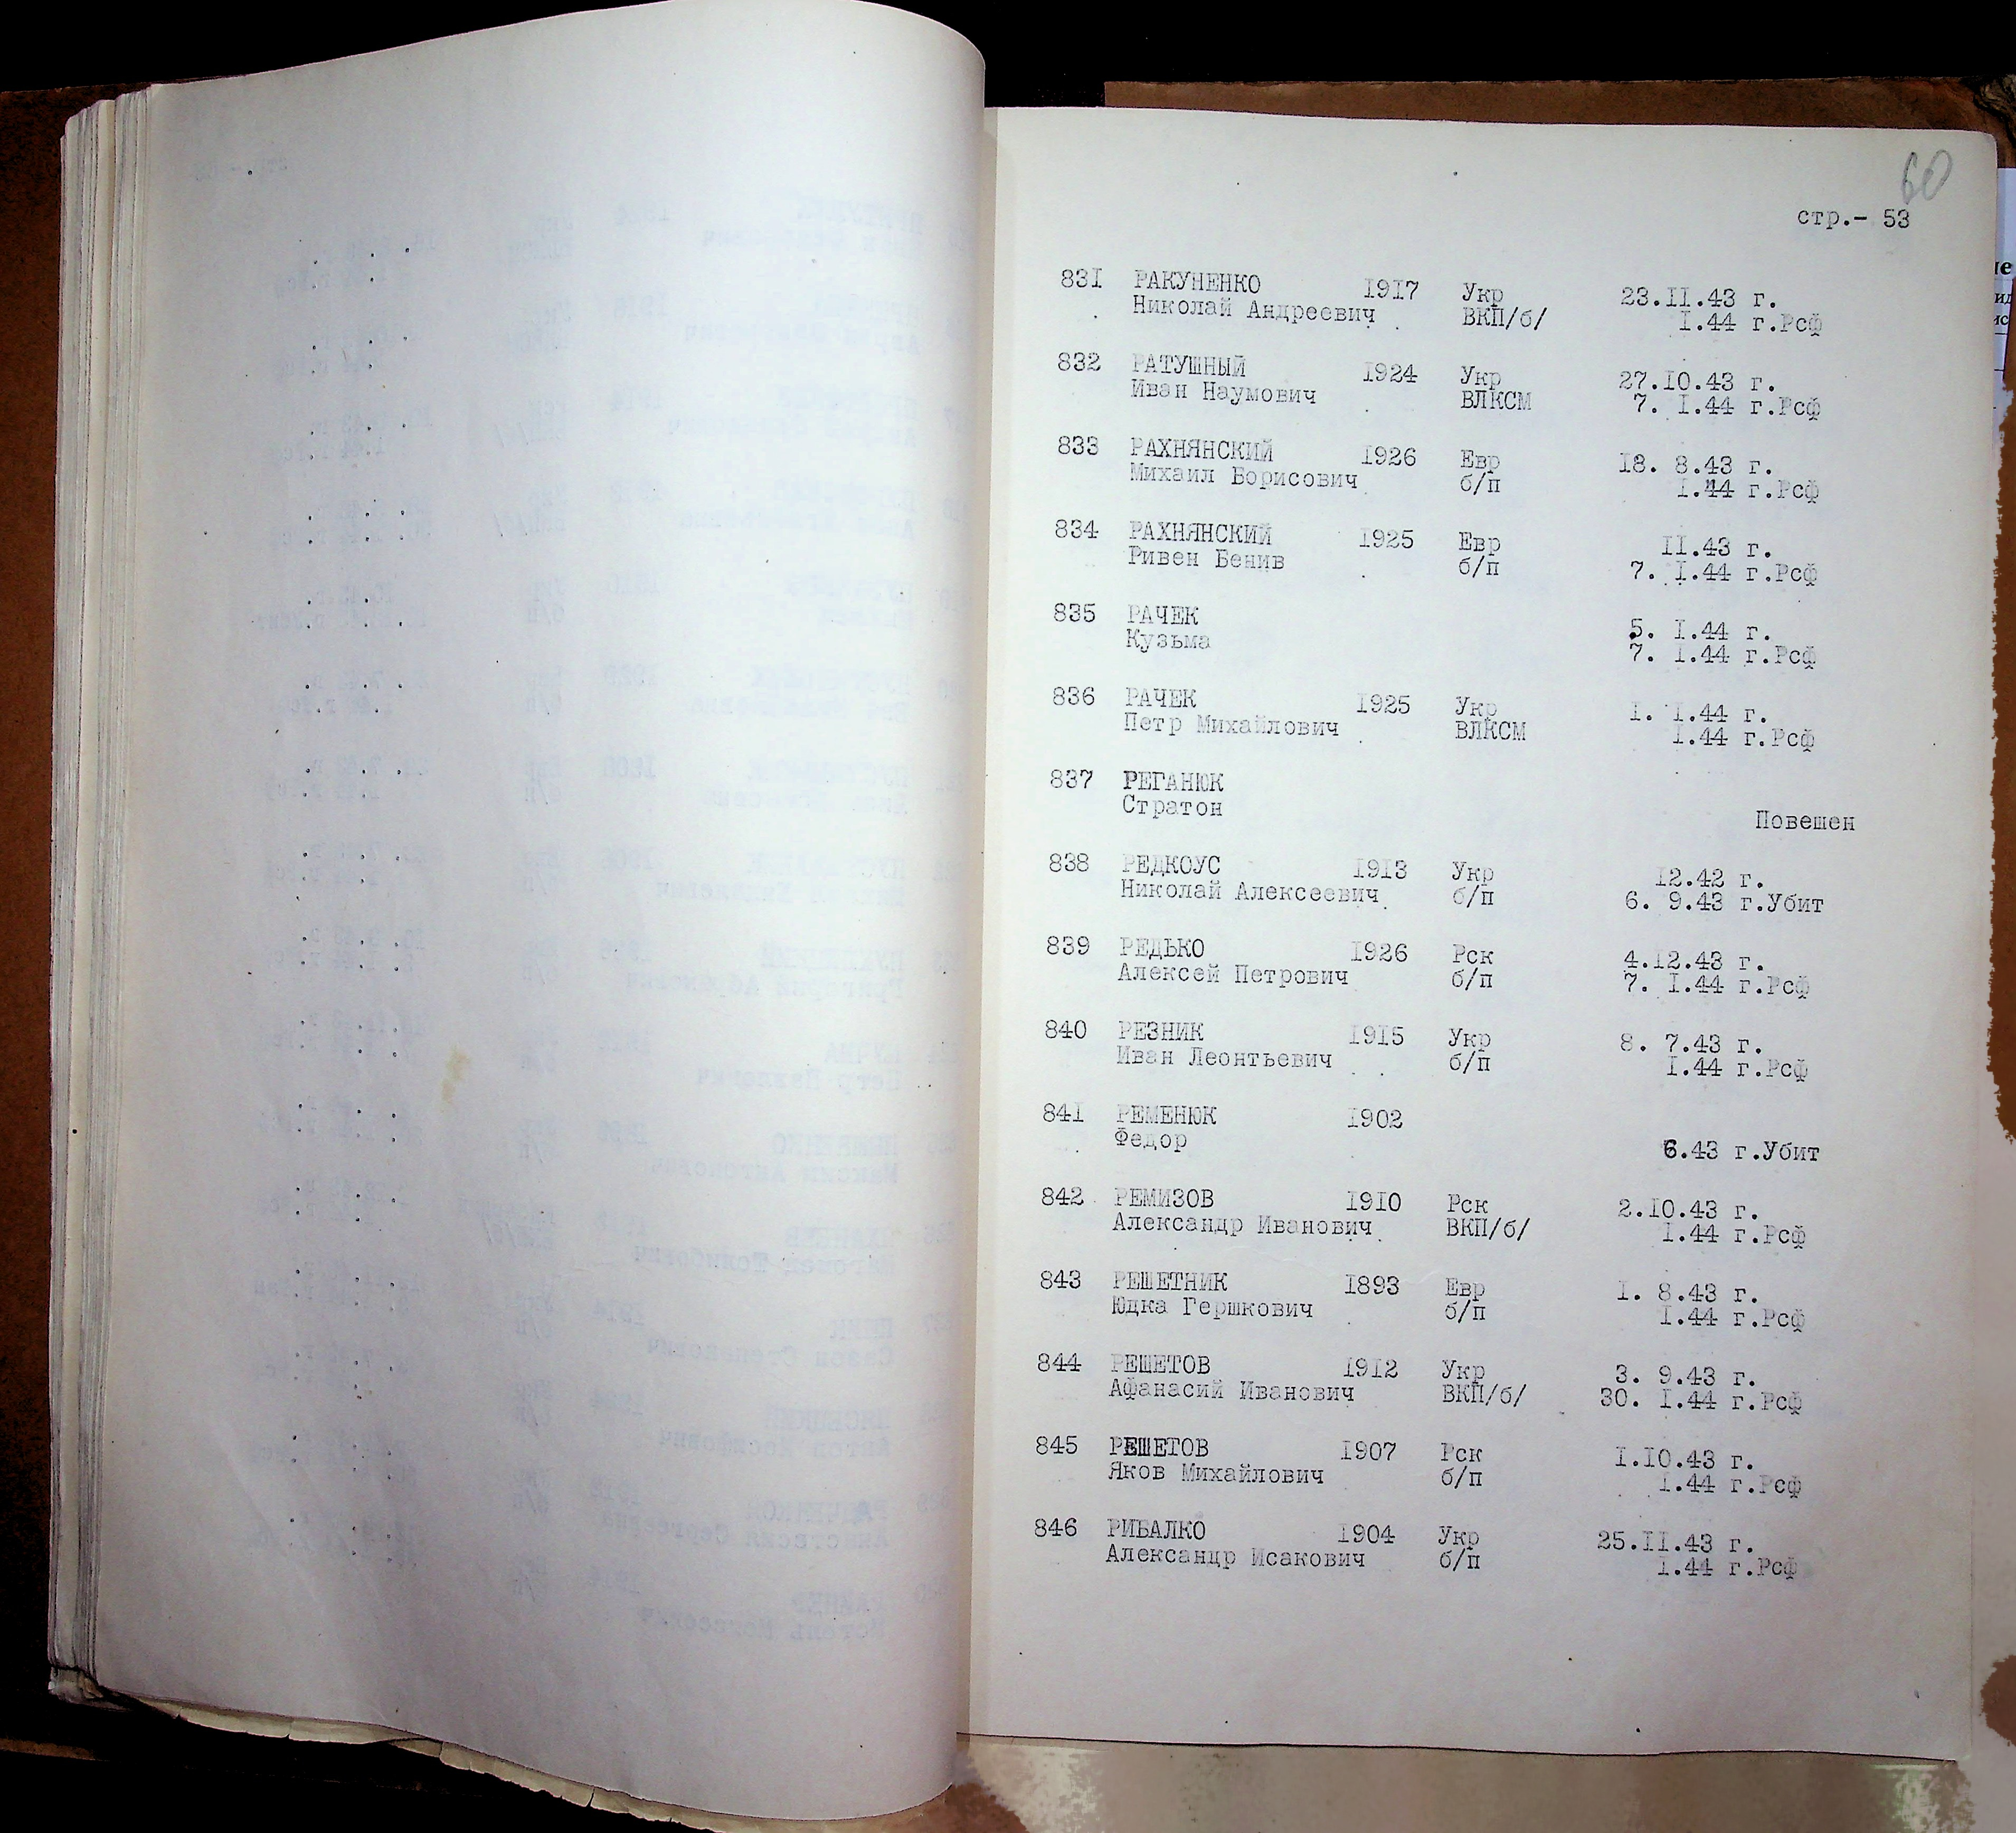 60
стр.- 53
831 РАКУНЕНКО 1917 Укр 23.II.43 г.
Николай Андреевич ВКП/б/ I.44 г.Рсф
832 РАТУШНЫЙ 1924 Укр 27.I0.43 г.
Иван Наумович ВЛКСМ 7. I.44 г.Рсф
833 РАХНЯНСКИЙ 1926 Евр I8. 8.43 г.
Михаил Борисович б/п I.44 г.Рсф
834 РАХНЯНСКИЙ 1925 Евр II.43 г.
Ривен Бенив б/п 7. I.44 г.Рсф
835 РАЧЕК 5. I.44 г.
Кузьма 7. I.44 г.Рсф
836 РАЧЕК 1925 Укр I. I.44 г.
Петр Михайлович ВЛКСМ I.44 г.Рсф
837 РЕГАНЮК
Стратон Повешен
838 РЕДКОУС 1913 Укр I2.42 г.
Николай Алексеевич б/п 6. 9.43 г.Убит
839 РЕДЬКО 1926 Рск 4.I2.43 г.
Алексей Петрович б/п 7. I.44 г.Рсф
840 РЕЗНИК 1915 Укр 8. 7.43 г.
Иван Леонтьевич б/п I.44 г.Рсф
841 РЕМЕНЮК 1902
Федор 6.43 г.Убит
842 РЕМИЗОВ 1910 Рск 2.I0.43 г.
Александр Иванович ВКП/б/ I.44 г.Рсф
843 РЕШЕТНИК 1893 Евр I. 8.43 г.
Юдка Гершкович б/п I.44 г.Рсф
844 РЕШЕТОВ 1912 Укр 3. 9.43 г.
Афанасий Иванович ВКП/б/ 30. I.44 г.Рсф
845 РЕШЕТОВ 1907 Рск I.I0.43 г.
Яков Михайлович б/п I.44 г.Рсф
846 РИБАЛКО 1904 Укр 25.II.43 г.
Александр Исакович б/п I.44 г.Рсф